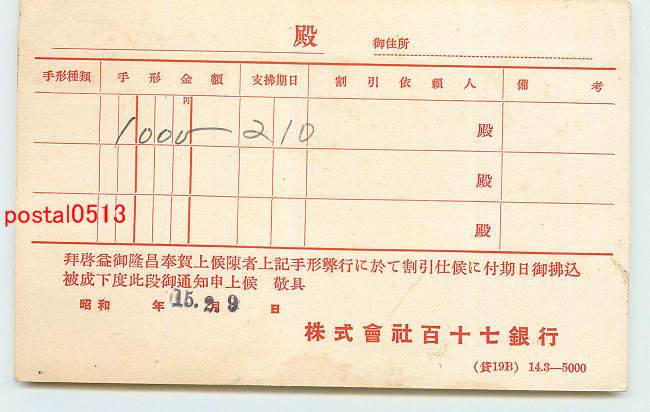 殿 御住所
手形種類 手形金額 支拂期日 割引依頼人 備考
円
1000 2 10 殿
殿
postal0513
殿
拜啓益御隆昌奉賀上候陳者上記手形弊行に於て割引仕候に付期日御拂込
被成下度此段御通知申上候 敬具
昭和 年 15.2.9 日
株式會社百十七銀行
(貸19B) 14.3—5000